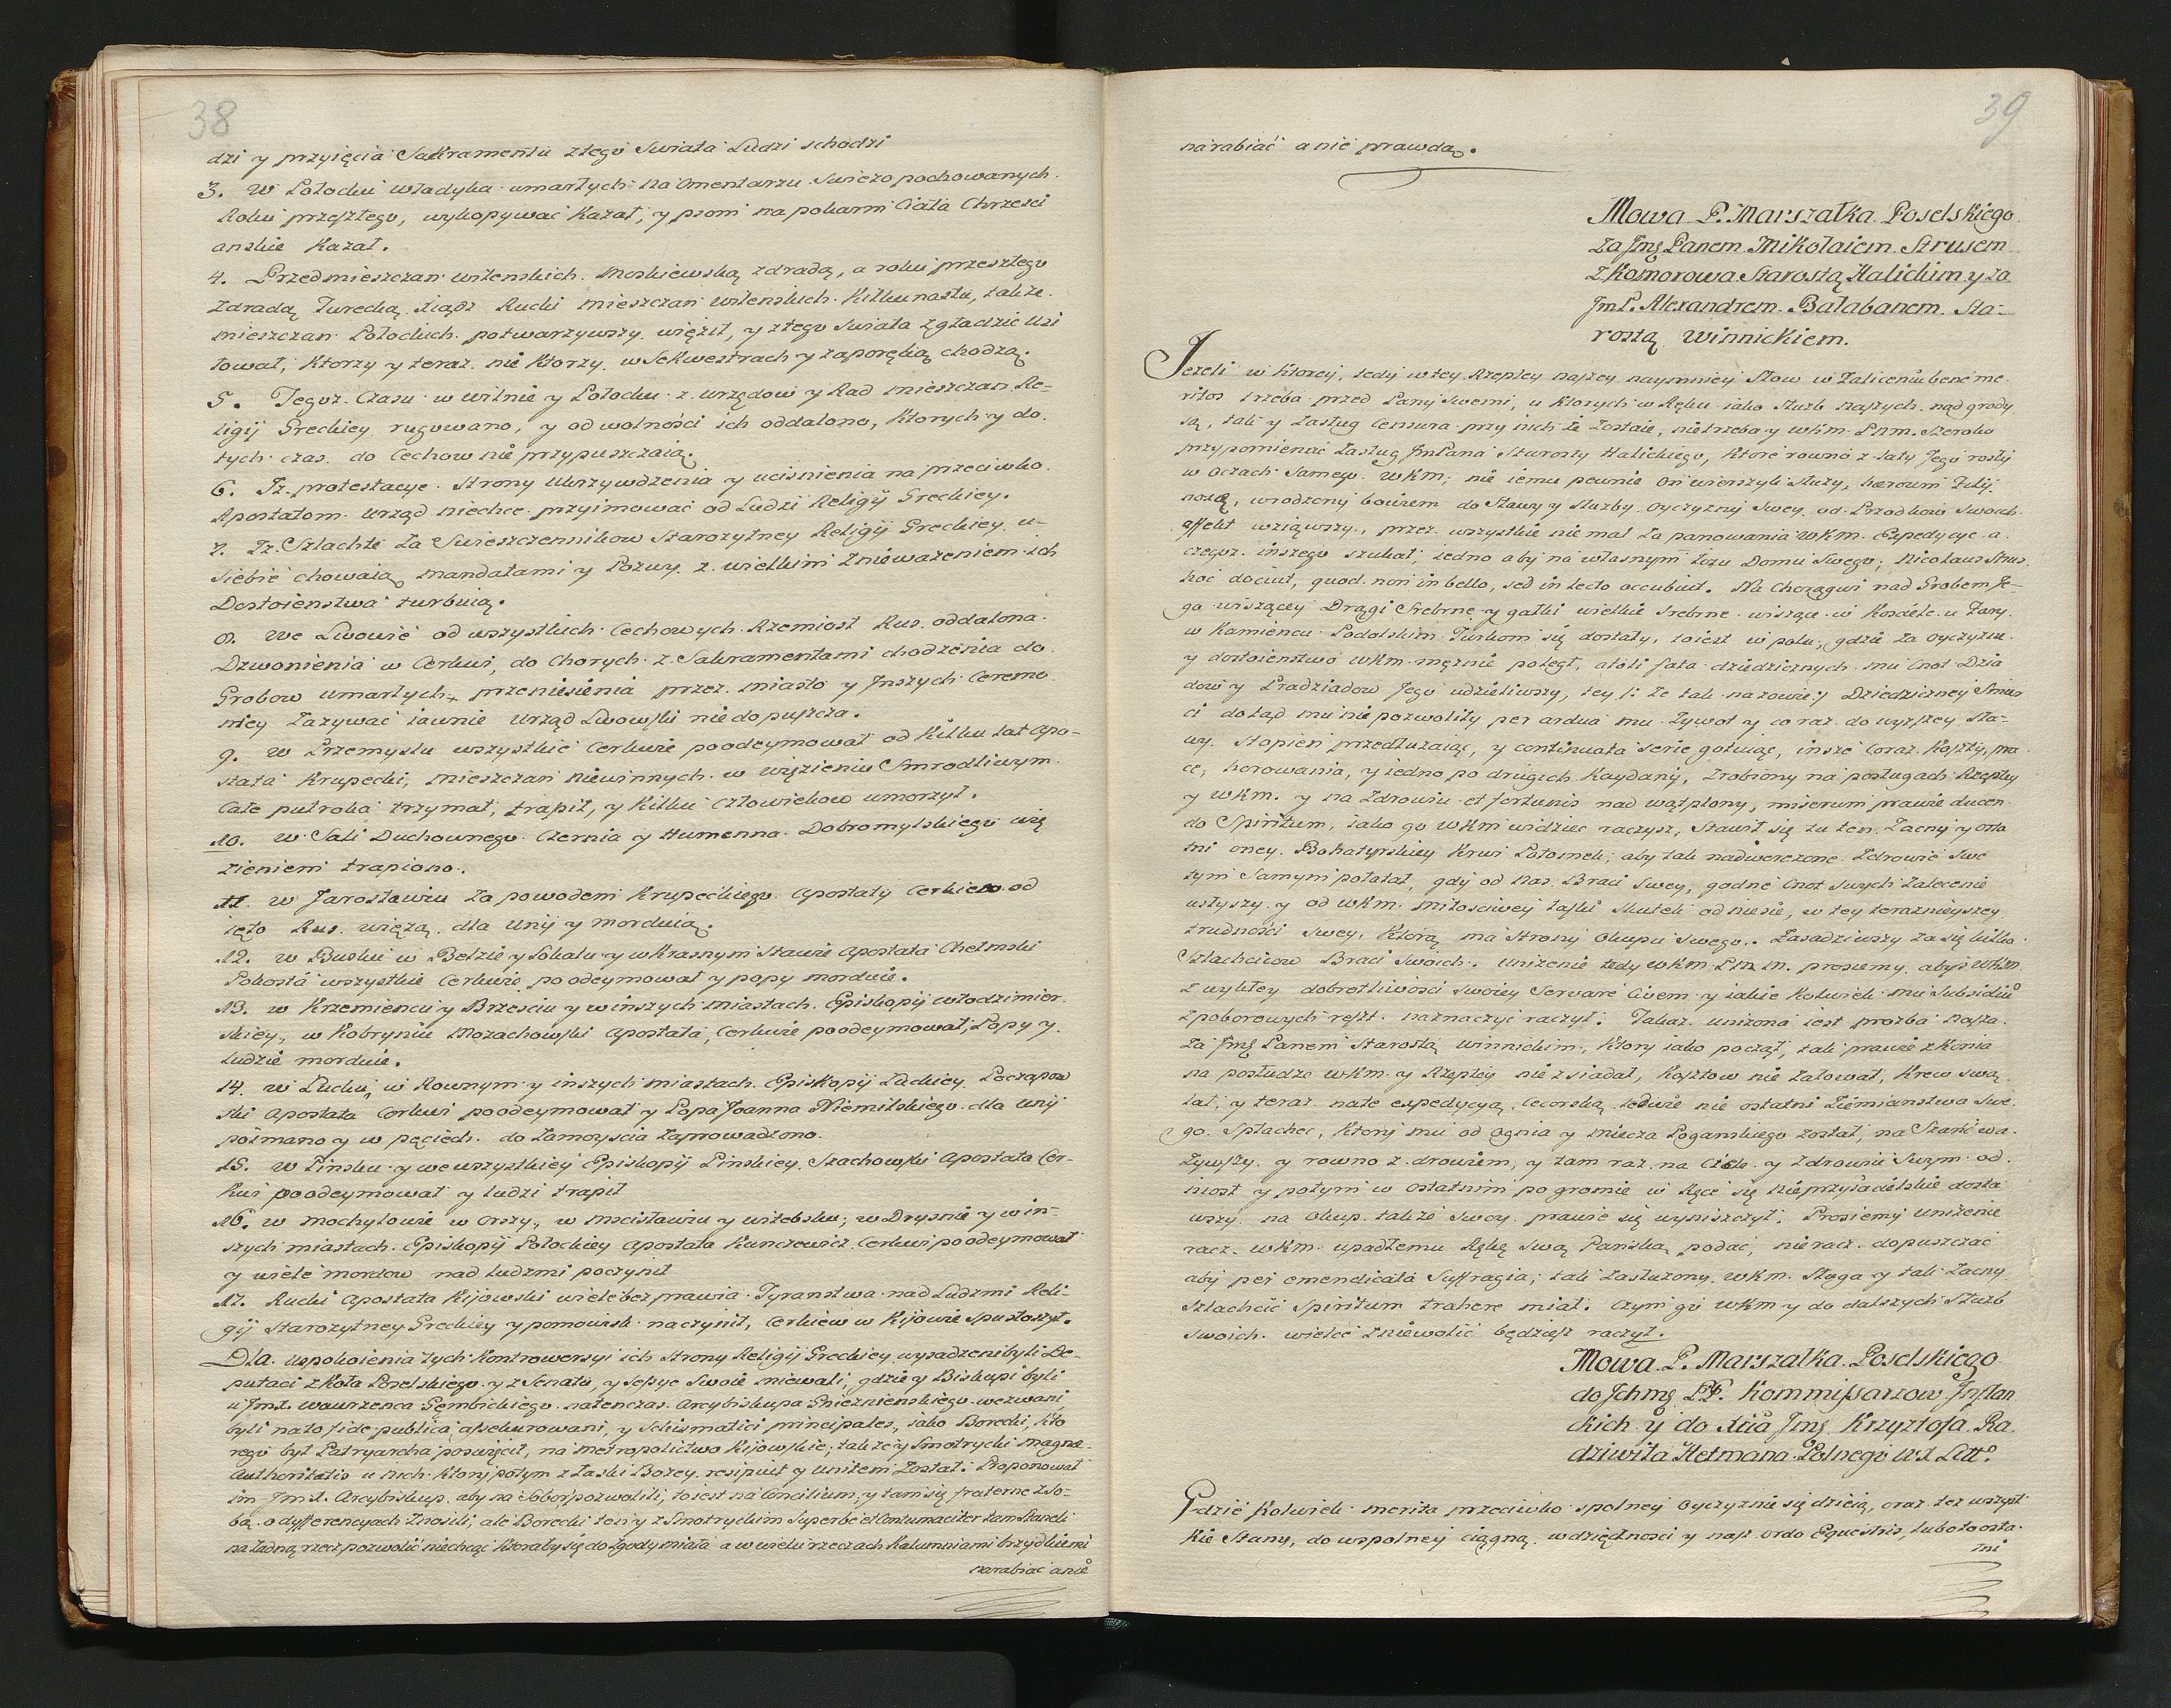 38
dzi y przyięcia Sakramentu z tego Swiata Ludzi schodzi
3. W Połocku władyka umarłych na Cmentarzu swiezo pochowanych
Roku przeszłego, wykopywać Kazał, y psom na pokarm Ciała Chrzesci
anskie Kazał.
4. Przedmieszczan wilenskich Moskiewską zdradą, a roku przeszłego
Zdradą Turecką. Xiądz Rucki mieszczan wilenskich Kilkunastu, takze
mieszczan Połockich potwarzywszy więził, y z tego swiata zgładzic usi
łował, Ktorzy y teraz nie Ktorzy w Sekwestrach y za poręką chodzą.
5. Tegoz Czasu w wilnie y Połocku z urzędow y Rad mieszczan Re-
ligij Greckiey rugowano, y od wolności ich oddalono, Ktorych y do
tych czas do Cechow nie przypuszczaią.
6. Jz protestacye Strony Ukrzywdzenia y ucisnienia na przeciwko
Apostatom Urząd niechce przyimować od Ludzi Religij Greckiey.
7. Jz Szlachte za Swieszczennikow Starozytney Religij Greckiey u
siebie chowaią mandatami y Pozwy z wielkim znieważeniem ich
Dostoienstwa turbuią.
8. We Lwowie od wszystkich Cechowych Rzemiosł Rus oddalona
Dzwonienia w Cerkwi, do Chorych z Sakramentami chodzenia do
Grobow umarłych przeniesienia przez miasto y Jnszych Ceremo
niey Zazywać iawnie Urząd Lwowski nie dopuszcza.
9. W Przemyslu wszystkie Cerkwie poodeymował od Kilku lat Apo-
stata Krupecki, mieszczan niewinnych w więzieniu Smrodliwym
Całe putroka trzymał, trapił, y Kilku Człowiekow umorzył.
10. w Sali Duchownego Czernia y Humenna Dobromylskiego wię
zieniem trapiono.
11. w Jarosławiu za powodem Krupeckiego Apostaty Cerkiew od
ięto Rus. więzą dla Unij y morduią.
12. w Busku w Bełzie y Sokalu y w Krasnym Stawie Apostata Chełmski
Pokosta wszystkie Cerkwie poodeymował y popy morduie.
13. w Krzemiencu y Brzesciu y w inszych miastach Episkopij Włodzimier
skiey, w Kobryniu Mozachowski Apostata, Cerkwie poodeymował, Popy y
Ludzie morduie.
14. w Łucku, w Rownym y inszych miastach Episkopij Łuckiey Poczapow
ski Apostata Cerkwi poodeymował y Popa Joanna Niemilskiego dla Unij
poimano y w pęciech do Zamoyscia zaprowadzono.
15. w Pinsku y we wszystkiey Episkopij Pinskiey Szachowski Apostata Cer-
kwi poodeymował y Ludzi trapił
16. w Mochylowie w Orszy, w Mscisławiu y witebsku, w Dryznie y w in-
szych miastach Episkopij Połockiey Apostata Kuncewicz Cerkwi poodeymował
y wiele mordow nad Ludzmi poczynił
17. Rucki Apostata Kijowski wiele bezprawia Tyranstwa nad Ludzmi Reli-
gij Starozytney Greckiey y pomowisk naczynił, Cerkiew w Kijowie spustoszył.
Dla uspokoienia tych Kontrowersyi ich strony Religij Greckiey wysadzeni byli De-
putaci z Koła Poselskiego y z Senatu, y Sessye Swoie miewali, gdzie y Biskupi byli
u Jmx. wawrzenca Gembickiego natenczas Arcybiskupa Gnieznienskiego wezwani,
byli na to fide publica assekurowani, y Schismatici principales, iako Borecki, Kto
rego był Patryarcha poswięcił, na Metropolictwo Kijowskie; takze y Smotrycki magnae
Authoritatis u nich Ktory potym z Łaski Bozey resipuit y Unitem został: Proponował
im Jmx. Arcybiskup aby na Sobor pozwolili, to iest na Concilium, y tam się fraterne z so-
bą o dyfferencyach znosili, ale Borecki ten y z Smotryckim Superbe et Contumaciter tam staneli
na zadną rzecz pozwolić niechcąc Ktoraby się do zgody miała a w wielu rzeczach Kalumniami brzydkiemi
narabiac a nie
39
narabiać a nie prawdą.
Mowa P. Marszałka Poselskiego
za Jmę Panem Mikołaiem Strusem
z Komorowa Starostą Halickim y za
Jmł. Alexandrem Bałabanem Sta-
rostą Winnickiem.
Jezeli w Ktorey, tedy w tey Rzeptey naszey naymniey Słow w Zaliceniu bene me-
ritos trzeba przed Pany Swemi, u Ktorych w Ręku iako Służb naszych nadgrody
są, tak y Zasług Censura przy nich ze zostaie, nie trzeba y WKM. PnM. szeroko
przypominać zasług JmPana Starosty Halickiego, Ktore rowno z laty Jego rosły
w oczach Samego WKM; nie iemu pewnie on wierszyk służy, haeroum filij
noxę, wrodzony bowiem do Sławy y służby Oyczyzny Swey od Przodkow Swoich
affekt wziąwszy, przez wszystkie nie mal za panowania WKM. Expedycye a
czegoz inszego szukał, iedno aby na własnym łozu Domu Swego; Nicolaus Strus
hoc docuit, quod non in bello, sed in lecto occubuit. Na Chorągwi nad Grobem Je-
go wiszącey Drągi Srebrne y gałki wielkie srebrne wiszące w Kosciele u Fary
w Kamiencu Podolskim Turkom się dostały, to iest w polu, gdzie za Oyczyzne
y dostoienstwo WKM męznie poległ, atoli fata dziedzicznych mu Cnot Dzia
dow y Pradziadow Jego udzieliwszy, tey /: ze tak nazowie :/ Dziedziczney Smier
ci dotąd mu nie pozwoliły per ardua mu Zywot y co raz do wyższey sła-
wy Stopien przedłuzaiąc, y continuata serie gotuiąc, insze Coraz Koszty, pra
ce, horowania, y iedno po drugich Kaydany, zrobiony na posługach Rzeptey
y WKM. y na Zdrowiu et fortunis nad wątplony, miserum prawie ducen
do Spiritum, iako go WKM widziec raczysz, Stawił się tu ten Zacny y osta
tni oney Bohatyrskiey Krwi Potomek; aby tak nadwerezone Zdrowie Swe
tym Samym połatał, gdy od nas Braci Swey, godne Cnot swych Zalecenie
usłyszy y od WKM. miłosciwey łaski skutek odniesie, w tey teraznieyszey
trudności Swey, Ktorą ma Strony Okupu Swego. Zasadziwszy za się kilka
Szlachcicow Braci Swoich. Unizenie tedy WKM PnM. prosiemy abys WKM
z wykłey dobrotliwości Swoiey Servare Civem y iakie Kolwiek mu Subsidiu
z poborowych reszt naznaczyć raczył. Takaz unizona iest prozba nasza
Za Jmę Panem Starostą Winnickim, Ktory iako począł, tak prawie z Konia
na posłudze WKM y Rzeptey nie zsiadał, Kosztow nie załował, Krew swą
lał, y teraz na te expedycyą Cecorską ledwie nie ostatni Ziemianstwa Swe
go Spłachec, Ktory mu od ognia y miecza Poganskiego został, na Szanc wa-
zywszy y rowno z drowiem, y tam raz na Ciele y Zdrowiu Swym od
niosł y potym w ostatnim pogromie w Ręce się nieprzyiacielskie dosta
wszy na Okup takze Swoy prawie się wyniszczył. Prosiemy unizenie
racz WKM upadłemu Rękę Swą Panską podać, nie racz dopuszczac
aby per emendicata Suffragia; tak zasłużony WKM. Sługa y tak Zacny
Szlachcic Spiritum trahere miał. Czym go WKM y do dalszych Służb
Swoich wielce zniewolić będziesz raczył.
Mowa P. Marszalka Poselskiego
do Jchmę PP. Kommissarzow Jnflan
ckich y do Xcia Jmę Krzyztofa Ra
dziwiła Hetmana Polnego WX Litt:
Gdzie Kolwiek merita przeciwko spolney Oyczyznie się dzieią, oraz tez wszyst
kie Stany, do wspolney ciągną wdzięczności y nasz Ordo Equestris, lubo to osta
tni